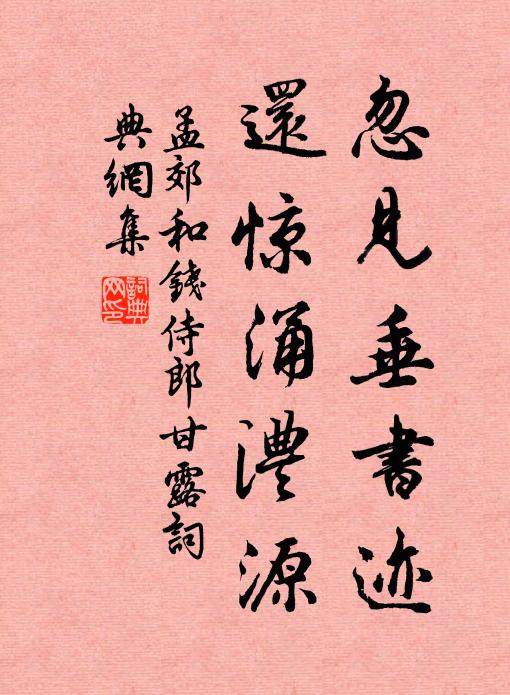 忽見垂書迹
還惊涌澧源
孟郊和錢侍郎甘露詞
典網集
詞典
网印